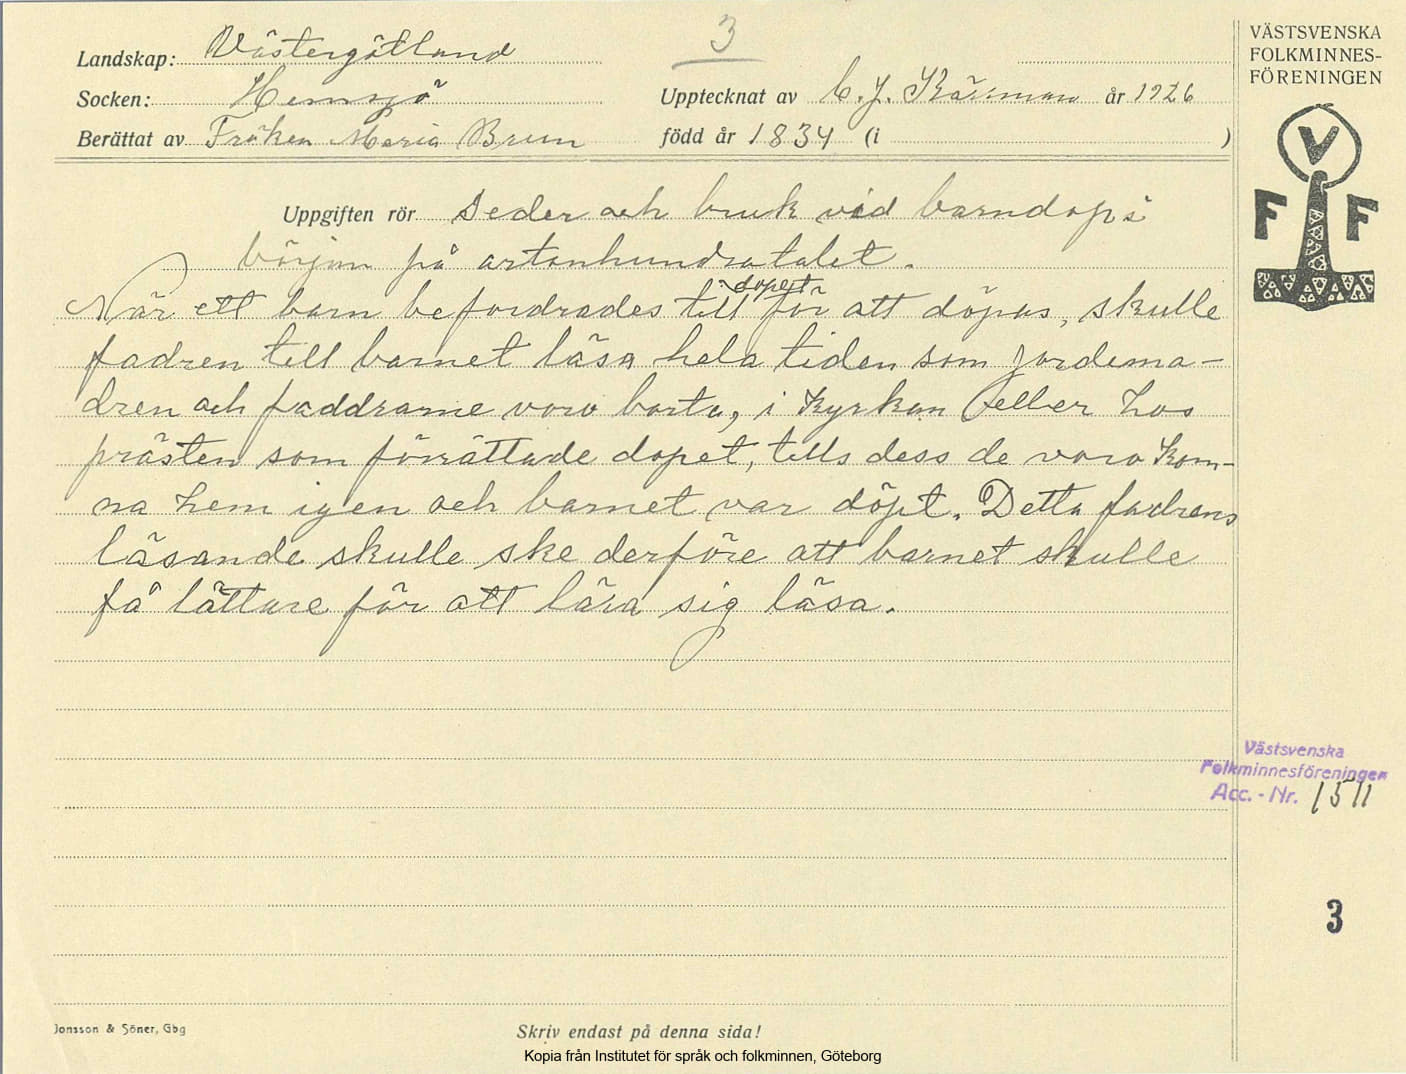 3
Landskap: Västergötland
Socken: Hemsjö
Upptecknat av C. J. Kärrman år 1926
Berättat av Fröken Maria Brun född år 1834 (i )
VÄSTSVENSKA
FOLKMINNES-
FÖRENINGEN
V
F F
Uppgiften rör Seder och bruk vid barndop i
början på artonhundratalet.
dopet
När ett barn befordrades till för att döpas, skulle
fadren till barnet läsa hela tiden som jordema-
dren och faddrarne voro borta, i kyrkan eller hos
prästen som förrättade dopet, tills dess de voro kom-
na hem igen och barnet var döpt. Detta fadrens
läsande skulle ske derföre att barnet skulle
få lättare för att lära sig läsa.
Västsvenska
Folkminnesföreningen
Acc. - Nr. 1511
3
Jonsson & Söner, Gbg
Skriv endast på denna sida!
Kopia från Institutet för språk och folkminnen, Göteborg